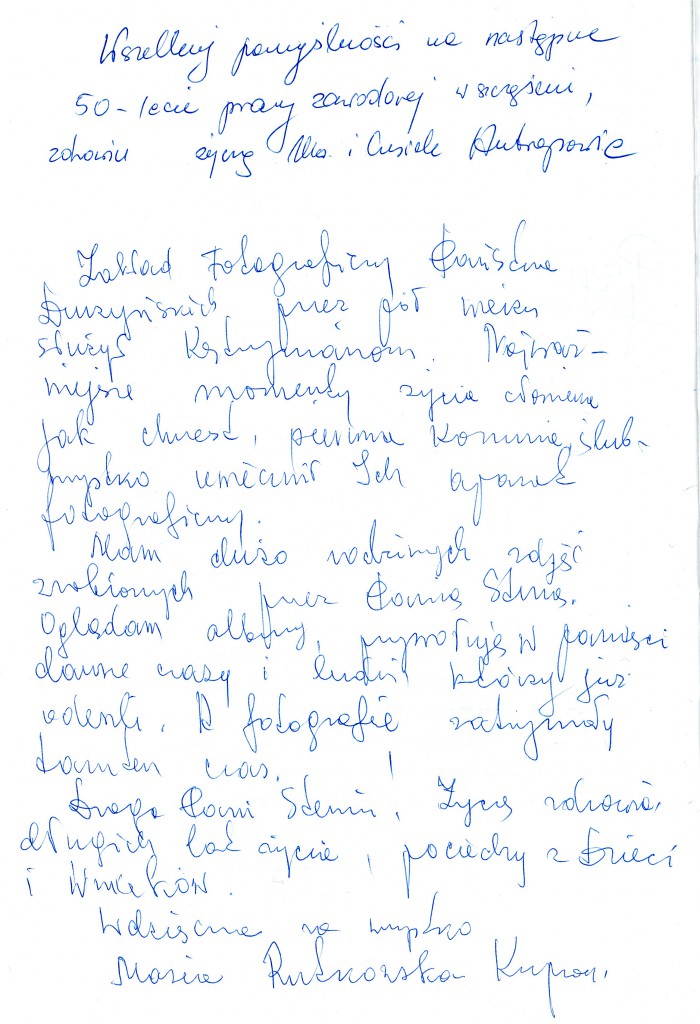 Wszelkiej pomyślności na następne
50-lecie pracy zawodowej w szczęściu,
zdrowiu życzą i
Zakład Fotograficzny Państwa
przez pół wieku
służył Kętrzynianom. Najważ-
niejsze momenty życia człowieka
jak chrzest, pierwsza Komunia, ślub-
wszystko uwiecznił Ich aparat
fotograficzny.
Mam dużo rodzinnych zdjęć
zrobionych przez Panią Stenię.
Oglądam albumy, przywołuję w pamięci
dawne czasy i ludzi którzy już
odeszli. A fotografie zatrzymały
tamten czas. !
Droga Pani Steniu, Życzę zdrowia,
długich lat życia, pociechy z Dzieci
i Wnuków.
Wdzięczna za wszystko
Maria Rutkowska